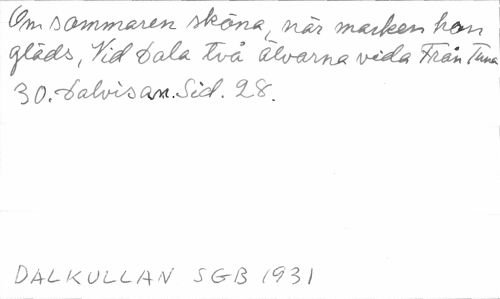 Om sommaren sköna, när marken hon
gläds, Vid Dala två älvarna vida Från Tuna
30. Dalvisan. Sid. 28.
DALKULLAN SGB 1931